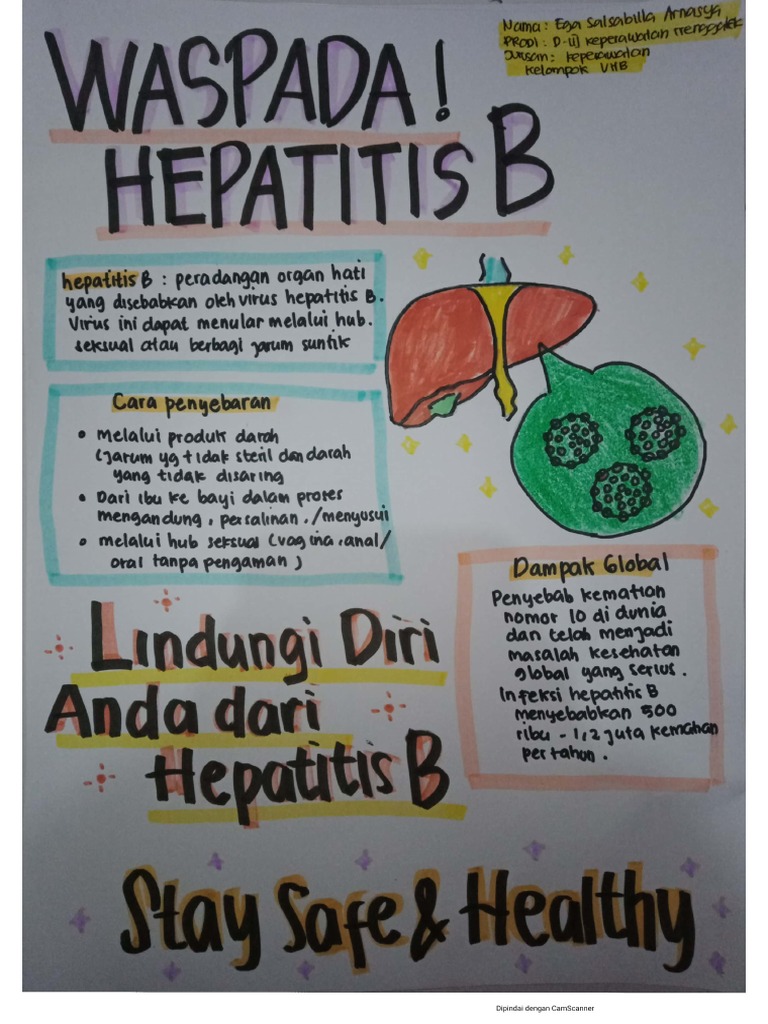 Nama : Ega Salsabilla Arnasya
PRODI : D-III keperawatan Trenggalek
Jurusan : keperawatan
kelompok VIIB
WASPADA !
HEPATITIS B
hepatitis B : peradangan organ hati
yang disebabkan oleh virus hepatitis B.
Virus ini dapat menular melalui hub.
seksual atau berbagi jarum suntik
Cara penyebaran
• melalui produk darah
(jarum yg tidak steril dan darah
yang tidak disaring
• Dari ibu ke bayi dalam proses
mengandung, persalinan, /menyusui
• melalui hub seksual (vagina, anal/
oral tanpa pengaman )
Dampak Global
Penyebab kematian
nomor 10 di dunia
dan telah menjadi
masalah kesehatan
global yang serius.
Infeksi hepatitis B
menyebabkan 500
ribu - 1,2 juta kematian
per tahun.
Lindungi Diri
Anda dari
Hepatitis B
Stay Safe & Healthy
Dipindai dengan CamScanner